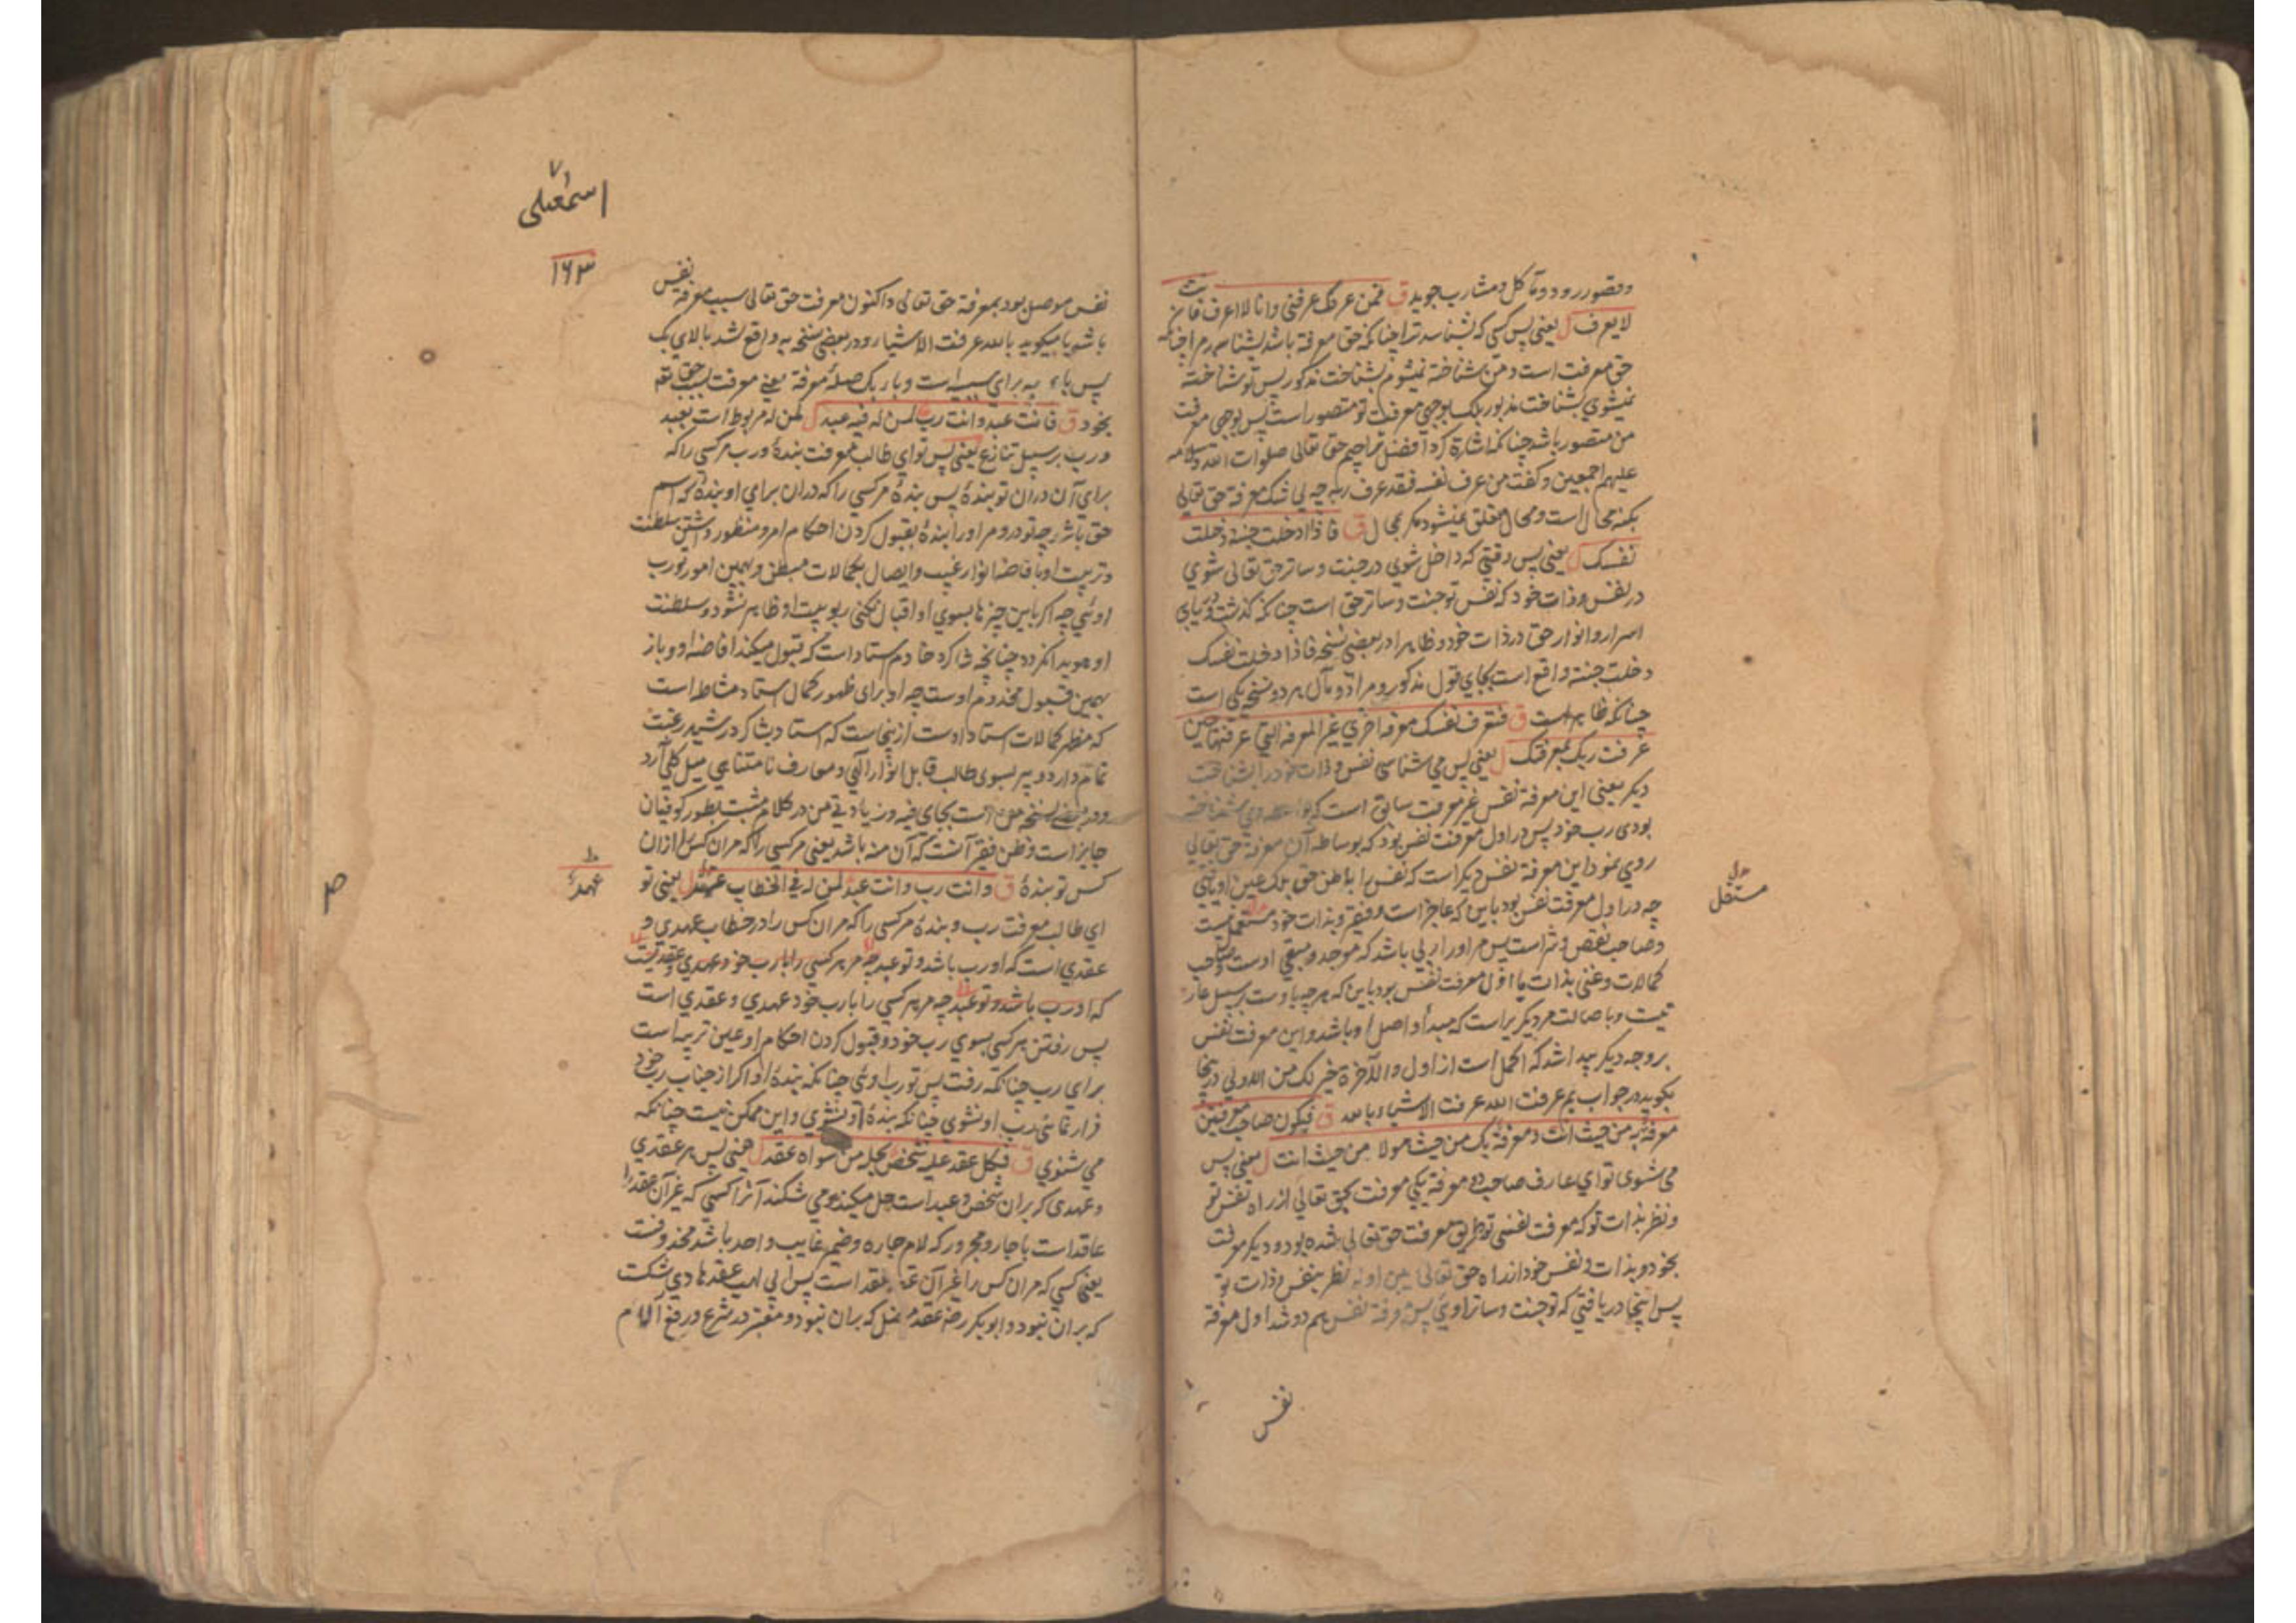 و قصور رود و مآکل و مشارب جوید ق فمن عرفک عرفنی وانا لا اعرف فانت
لا یعرف ل یعنی پس کسی که بشناسد ترا چنانکه حق معرفة باشد بشناسد مرا چنانکه
حق معرفت است و من شناخته نمیشوم بشناخت مذکور پس تو شناخته
نمیشوی بشناخت مذبور بلک بوجهی معرفت تو متصور است پس بوجهی معرفت
من متصور باشد چنانکه اشارة کرد افضل تراجم حق تعالی صلوات الله و سلامه
علیهم اجمعین و کفت من عرف نفسه فقد عرف ربه چه بی شک معرفة حق تعالی
بکنه محال است و محال معلق نمیشود مکر بمحال ق فاذا دخلت جنته دخلت
نفسک ل یعنی پس وقتی که داخل شوی در جنت و ساتر حق تعالی شوی
در نفس و ذات خود که نفس تو جنت و ساتر حق است چنانکه کذشت و یابی
اسرار و انوار حق در ذات خود و ظاهرا در بعضی نسخه فاذا دخلت نفسک
دخلت جنته واقع است بجای قول مذکور و مراد و مآل هر دو نسخه یکی است
چنانکه ظاهر است ق فتعرف نفسک معرفة اخری غیر المعرفة التی عرفتها حین
عرفت ربک بمعرفتک ل یعنی پس می شناسی نفس و ذات خود را بشناخت
دیکر یعنی این معرفة نفس غیر معرفت سابق است که شناخته
بودی رب خود پس در اول معرفت نفس بود که بوساطه آن معرفة حق تعالی
روی نمود این معرفة نفس دیکر است که نفس را باطن حق بلک عین او یابی
چه در اول معرفت نفس بود باین که عاجز است و فقیر و بذات خود مستقل نیست
و صاحب نقص و شر است پس مر او را ربی باشد که موجد و مبقی اوست و صاحب
کمالات و غنی بذات یا اول معرفت نفس بود باین که هر چه باوست بر سبیل عار
تیت و باصالت مر دیکریراست که مبدأ و اصل او باشد و این معرفت نفس
بر وجه دیکر پیدا شد که اکمل است از اول و الآخرة خیر لک من الاولی در ینجا
بکوید در جواب بم عرفت الله عرفت الاشیاء بالله ق فیکون صاحب معرفتین
معرفة به من حیث انت و معرفة بک من حیث هو لا من حیث انت ل یعنی پس
می شوی تو ای عارف صاحب دو معرفة یکی معرفت بحق تعالی از راه نفس تو
و نظر بذات تو که معرفت نفسی تو طریق معرفت حق تعالی شده بود و دیکر معرفت
بخود و بذات و نفس خود از راه حق تعالی نظر بنفس و ذات تو
پس اینجا دریافتی که تو جنت و ساتر اویی پس معرفة نفس هم دو شد اول معرفة
مستقل
نفس
اسمعیلی
۱۶۳
نفس موصل بود بمعرفة حق تعالی و اکنون معرفت حق تعالی سبب معرفة نفس
باشد یا میکوید بالله عرفت الاشیاء و در بعضی نسخه به واقع شد بالای بک
پس باء به برای سبب است و باء بک صله معرفة یعنی معرفت بسبب حق تعه
بخود ق فانت عبد وانت رب لمن له فیه عبد ل لمن له مربوط است بعبد
و رب بر سبیل تنازع یعنی پس تو ای طالب معرفت بندهٔ و رب مر کسی را که
برای آن در آن تو بندهٔ پس بندهٔ مر کسی را که در آن برای او بندهٔ که اسم
حق باشد چه تو در و مر او را بندهٔ بقبول کردن احکام امر و منظور داشتن سلطنت
و تربیت او بافاضه انوار غیب و ایصال بکمالات مبطن و بهمین امور تو رب
اویی چه اکر باین چیزها بسوی او اقبال نکنی ربوبیت او ظاهر نشود و سلطنت
او هویدا نکردد چنانچه شاکرد خادم ستاد است که قبول میکند افاضه او و باز
بهمین قبول مخدوم اوست چه او برای ظهور کمال استاد مشاطه است
که مظهر کمالات استاد اوست ازینجاست که استاد بشاکرد رشید رغبت
تمام دارد و پیر بسوی طالب قابل انوار الهی و معارف نامتناهی میل کلی آرد
و در بعضی نسخه من است بجای فیه و زیادتی من در کلام مثبت بطور کوفیان
جایز است و ظن فقیر آنست که آن منه باشد یعنی مر کسی را که مر آن کس را از آن
کس تو بندهٔ ق وانت رب وانت عبد لمن له فی الخطاب عهد ل یعنی تو
ای طالب معرفت رب و بندهٔ مر کسی را که مر آن کس را در خطاب عهدی و
عقدی است که او رب باشد و تو عبد چه مر هر کسی را با رب خود عهدی و عقدیست
که او رب باشد و تو عبد چه مر هر کسی را با رب خود عهدی و عقدی است
پس رفتن هر کسی بسوی رب خود و قبول کردن احکام او عین تربیه است
برای رب چنانکه رفت پس تو رب اویی چنانکه بندهٔ او اکر از جناب رب خود
فرار نمائی رب او نشوی چنانکه بندهٔ او نشوی و این ممکن نیست چنانکه
می شنوی ق فکل عقد علیه شخص یحله من سواه عقد ل یعنی پس هر عقدی
و عهدی که بر آن شخص و عبد است حل میکند و می شکند آنرا کسی که غیر آن عقد را
عاقد است یا جار و مجرور که لام جاره و ضمیر غایب واحد باشد محذوفست
یعنی کسی که مر آن کس را غیر آن عقد است پس ابی لهب عقدها دی شکست
که بر آن نبود و ابوبکر رضه عقد که بر آن نبود و معتبر در شرع و رفع آلام
عهد